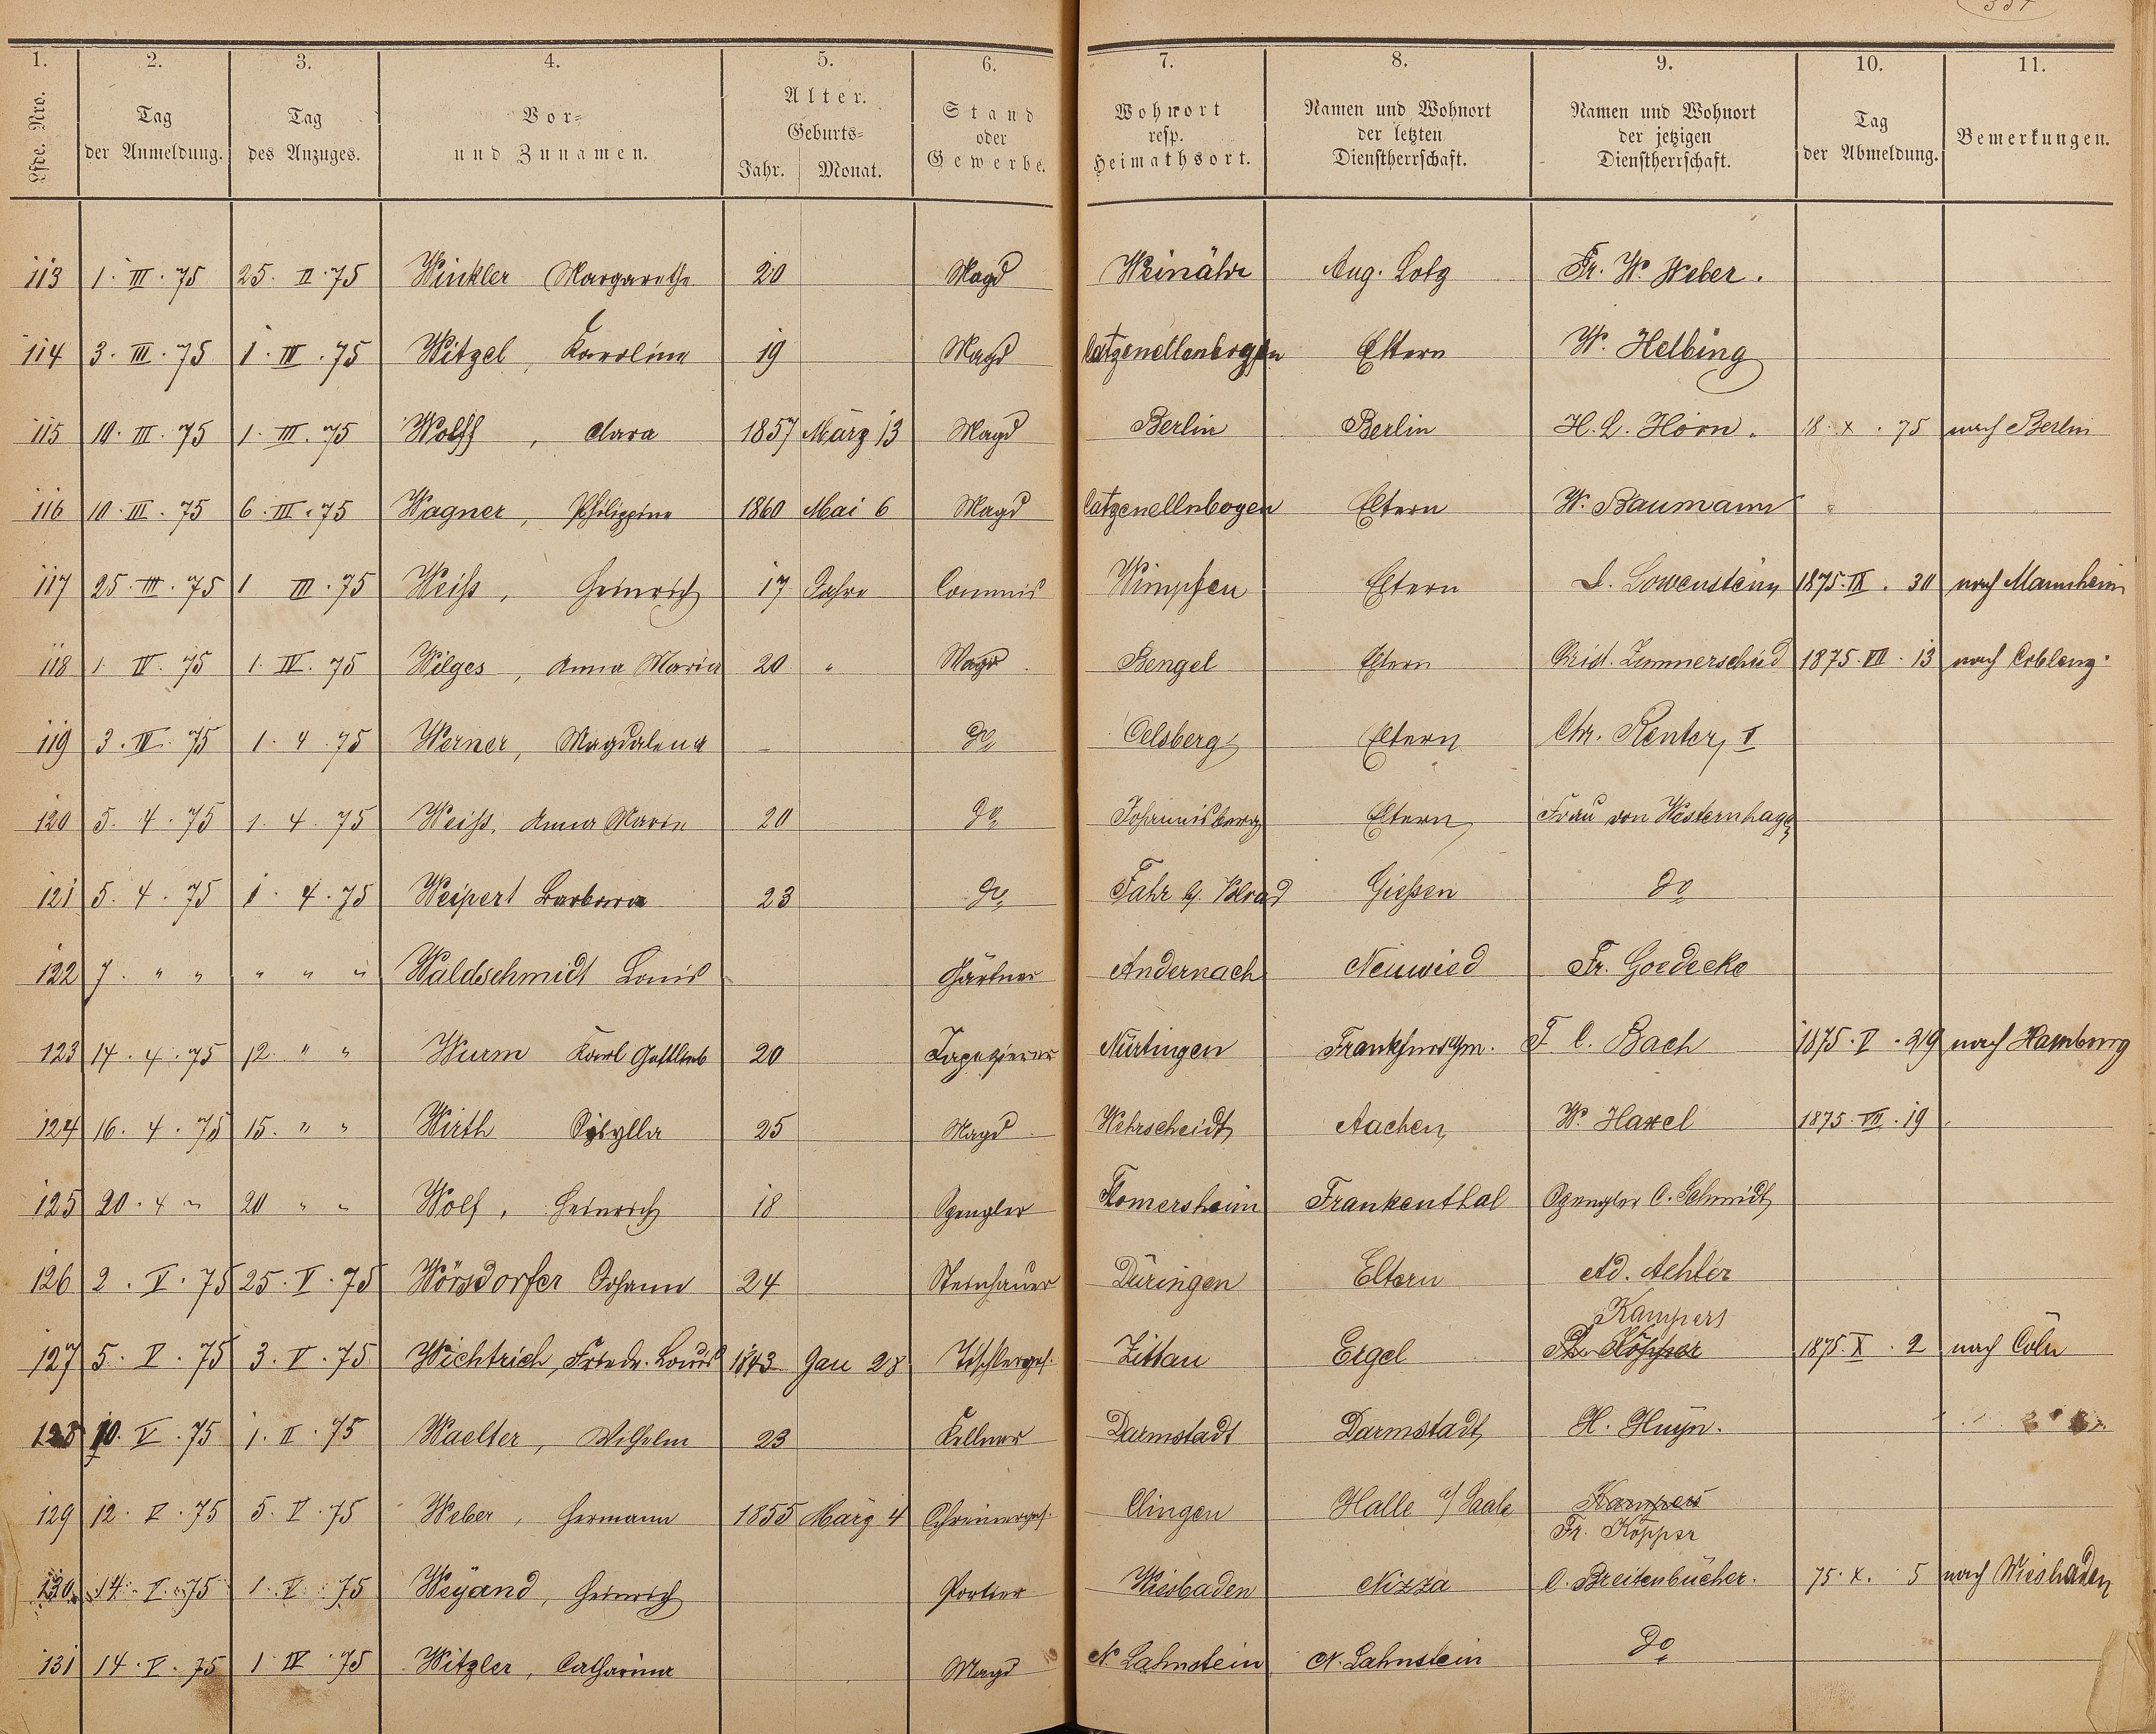 1. 2. 3. 4. 5. 6. 7. 8. 9. 10. 11.
Lfde. Nro. | Tag der Anmeldung. | Tag des Anzuges. | Vor- und Zunamen. | Alter. Geburts- Jahr. Monat. | Stand oder Gewerbe. | Wohnort resp. Heimathsort. | Namen und Wohnort der letzten Dienstherrschaft. | Namen und Wohnort der jetzigen Dienstherrschaft. | Tag der Abmeldung. | Bemerkungen.
113 1. III. 75 25. II. 75 Winkler Margarethe 20 Magd Weinähr Aug. Lotz Fr. W. Weber.
114 3. III. 75 1. III. 75 Witzel, Karoline 19 Magd Catzenellenbogen Eltern W. Helbing
115 10. III. 75 1. III. 75 Wolff, Clara 1857 März 13 Magd Berlin Berlin H. L. Horn. 18. X. 75 nach Berlin
116 10. III. 75 6. III. 75 Wagner, Philippine 1860 Mai 6 Magd Catzenellnbogen Eltern W. Baumann
117 25. III. 75 1 III. 75 Weiß, Heinrich 17 Jahre Commis Wimpfen Eltern L. Lowenstein 1875. IX. 30 nach Mannheim
118 1. IV. 75 1. IV. 75 Wilges, Anna Maria 20 " Magd Bengel Eltern Zimmerschied 1875. VII. 13 nach Coblenz.
119 3. IV. 75 1. 4. 75 Werner, Magdalena – do Oelsberg Eltern Chr. Reuter, I
120 5. 4. 75 1. 4. 75 Weiß, Anna Marie 20 do Johannisberg Eltern Frau von Westernhagen
121 5. 4. 75 1. 4. 75 Weipert Barbara 23 do Fahr Gießen do
122 7. " " " " " Waldschmidt Louis Gärtner Andernach Neuwied Fr. Goedecke
123 14. 4. 75 12. " " Wurm Karl Gottlieb 20 Tapezierer Nürtingen Frankfurt a/m. F. C. Bach 1875. V. 29 nach Hamburg
124 16. 4. 75 15. " " Wirth Sibylla 25 Magd Wehrscheidt Aachen W. Haxel 1875. VII. 19
125 20. 4 " 20 " " Wolf, Heinrich 18 Spengler Flomersheim Frankenthal Spengler C. Schmidt
126 2. V. 75 25. V. 75 Wörsdorfer Johann 24 Steinhauer Düringen Eltern Ad. Achler
Kampers
127 5. V. 75 3. V. 75 Wichtrich, Friedr. Louis 1843 Jan 28 Tischlerges. Zittau Ergel Köpper 1875. X. 2 nach Cöln
128 10. V. 75 1. II. 75 Waelter, Wilhelm 23 Kellner Darmstadt Darmstadt H. Huyn.
129 12. V. 75 5. V. 75 Weber, Hermann 1855 März 4 Schreinerges. Clingen Halle a/ Saale Kampers
Fr. Köpper
130 14. V. 75 1. V. 75 Weyand, Heinrich Portier Wiesbaden Nizza C. Breitenbücher. 75. X. 5 nach Wiesbaden
131 14. V. 75 1. IV. 75 Witzler, Catharina Magd N. Lahnstein N. Lahnstein do